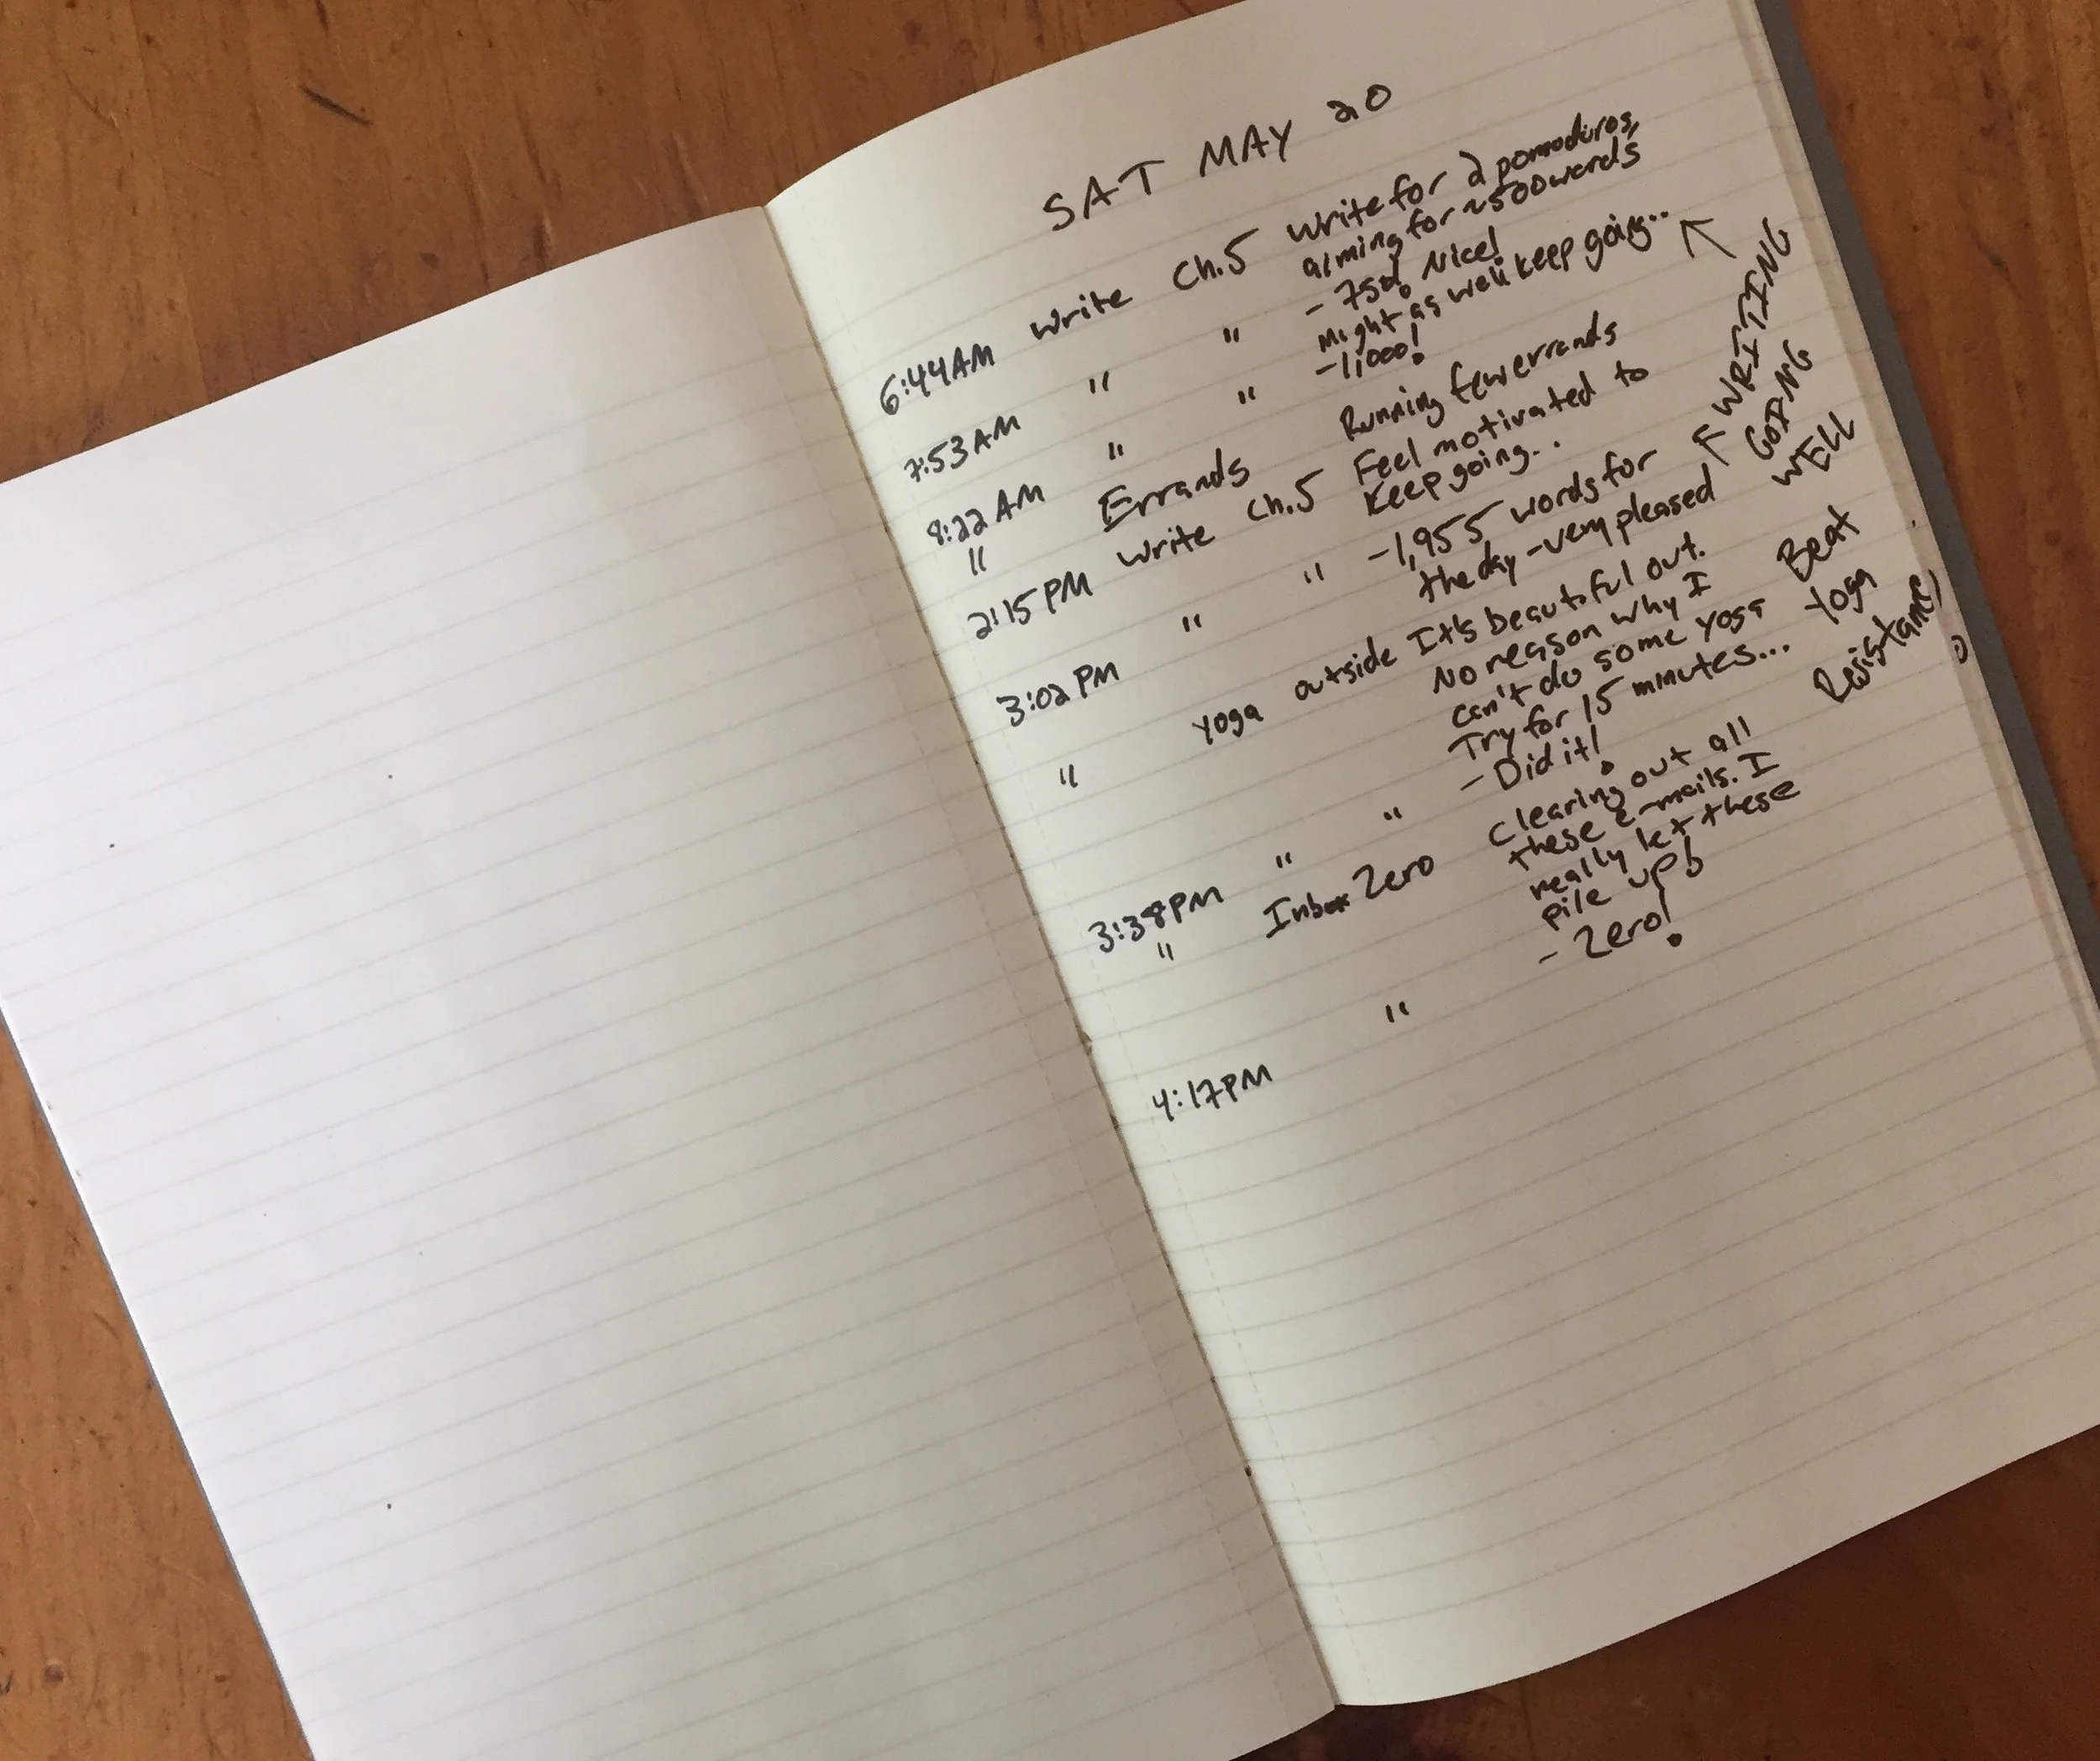 SAT MAY 20
6:44AM Write Ch.5 Write for 2 pomodoros,
aiming for ~500 words
7:53AM " " - 750! Nice!
Might as well keep going...
8:22AM " " - 1,000!
" Errands Running few errands
2:15PM Write Ch.5 Feel motivated to
keep going...
3:02PM " " - 1,955 words for
the day - very pleased
" Yoga outside It's beautiful out.
No reason why I
can't do some yoga
Try for 15 minutes...
3:38PM " " - Did it!
" Inbox Zero Clearing out all
these e-mails. I
really let these
pile up!
4:17PM " - Zero!
WRITING
GOING
WELL
Beat
Yoga
Resistance
:)